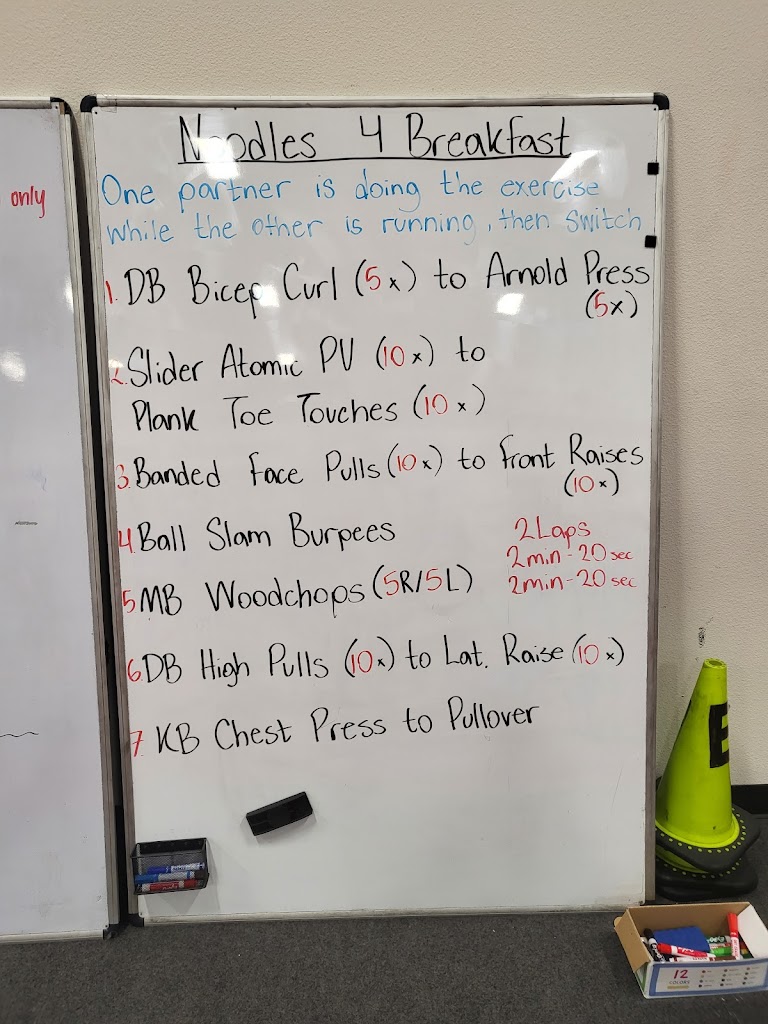 only
Noodles 4 Breakfast
One partner is doing the exercise
while the other is running, then switch
1. DB Bicep Curl (5x) to Arnold Press
(5x)
2. Slider Atomic PU (10x) to
Plank Toe Touches (10x)
3. Banded Face Pulls (10x) to Front Raises
(10x)
4 Ball Slam Burpees
2 Laps
2min - 20 sec
2min - 20 sec
5 MB Woodchops (5R/5L)
6. DB High Pulls (10x) to Lat. Raise (10x)
7 KB Chest Press to Pullover
E
12
COLORS